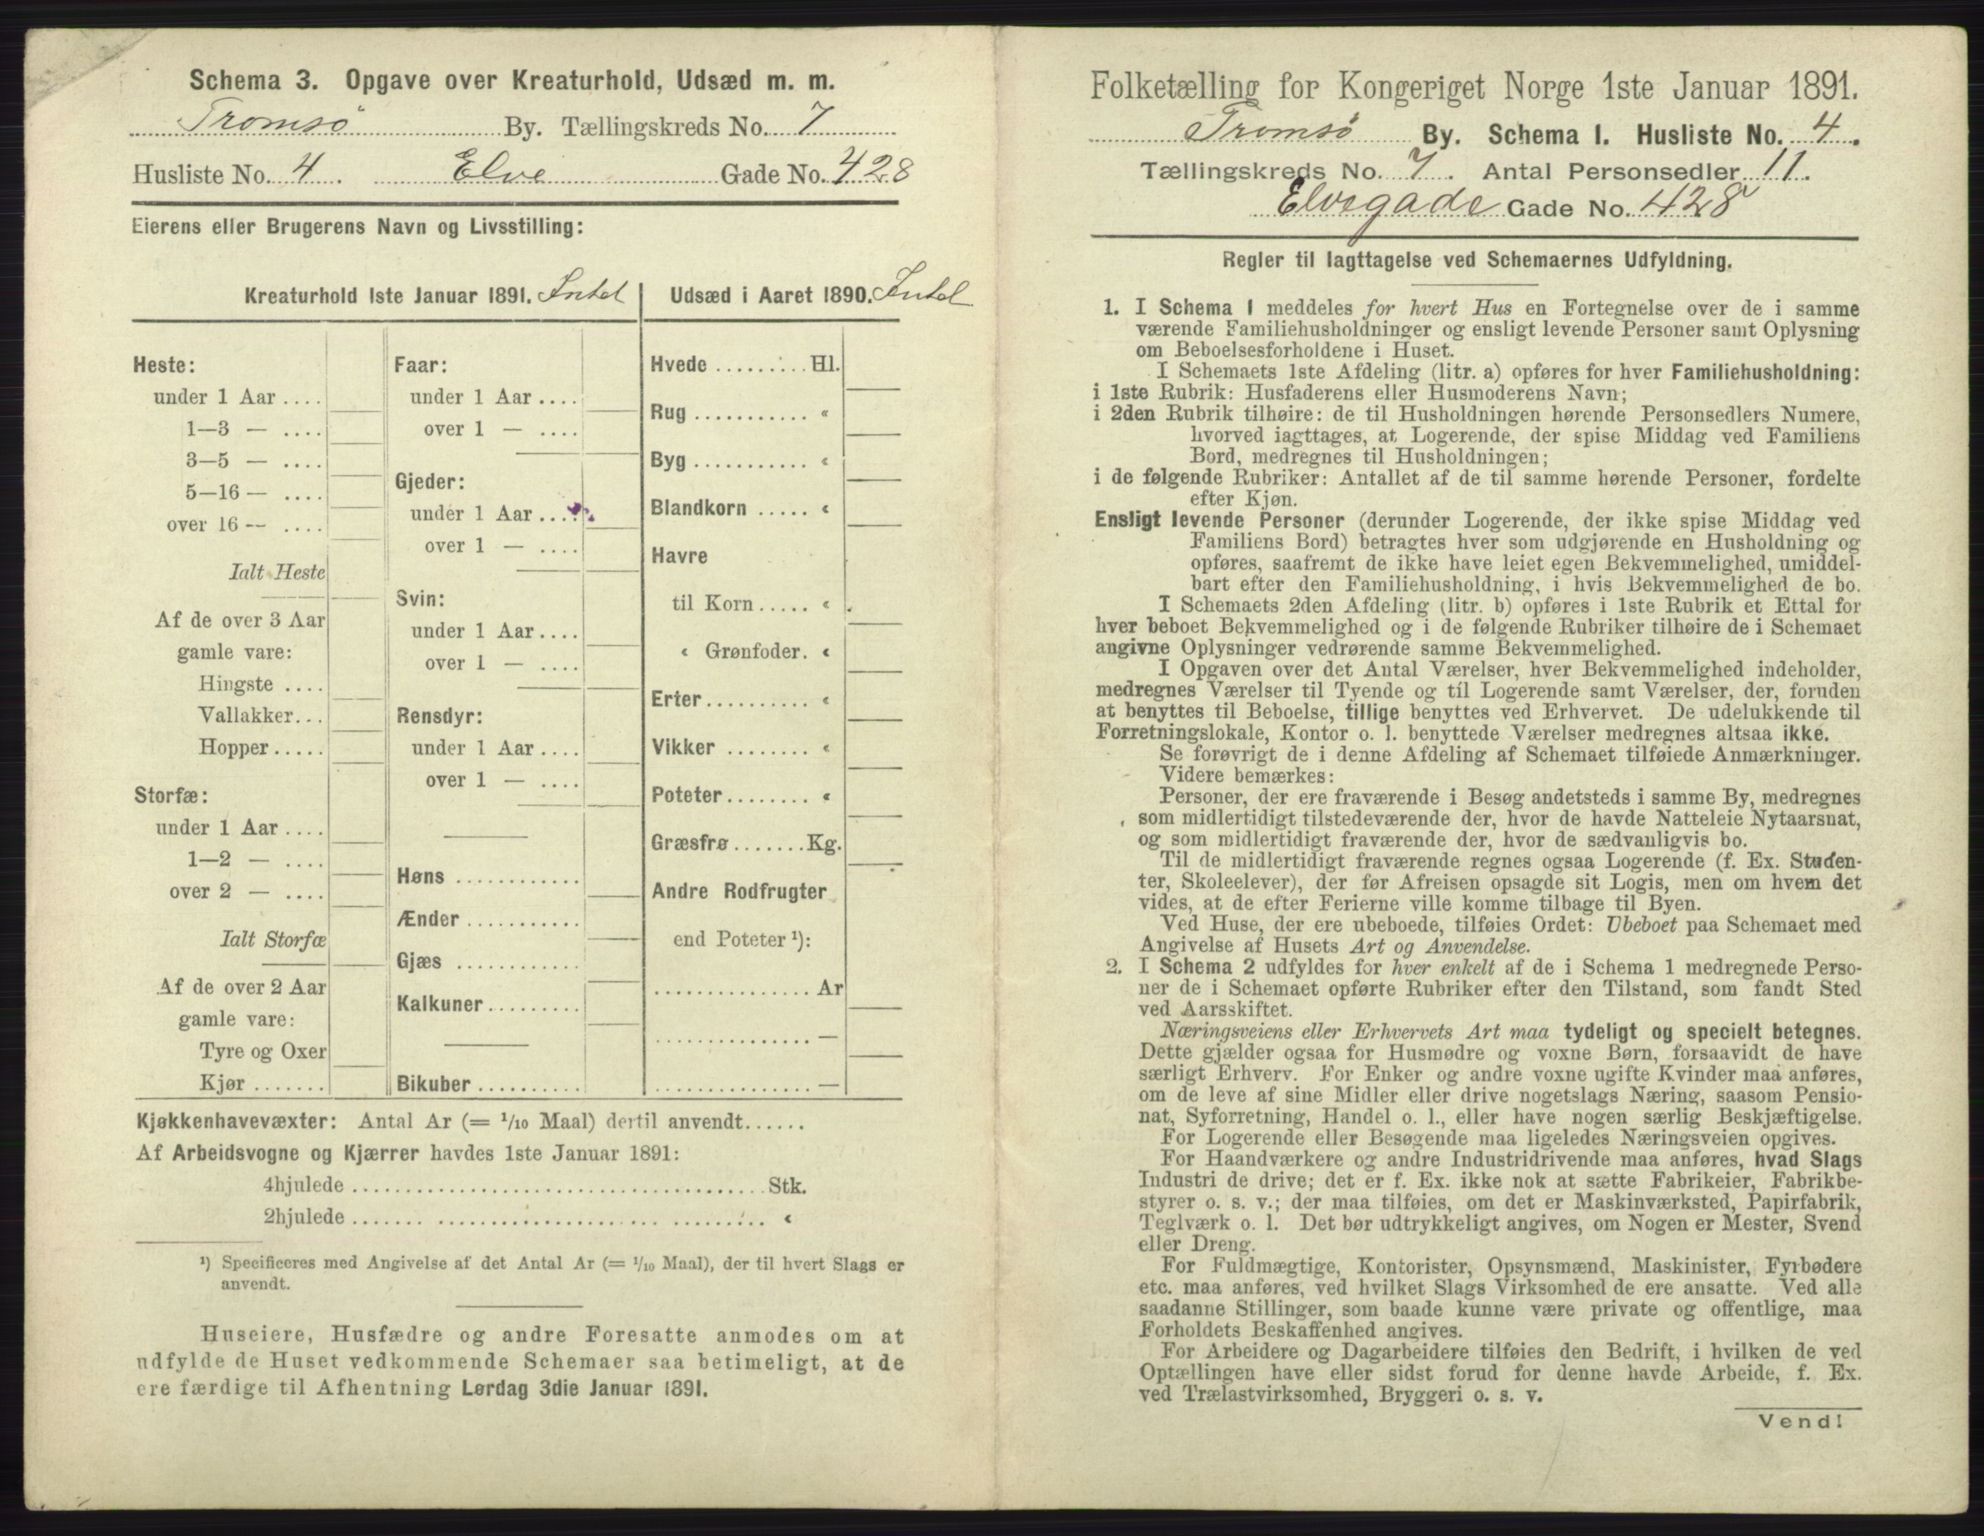 Schema 3. Opgave over Kreaturhold, Udsæd m. m.
Tromsø By. Tællingskreds No. 7
Husliste No. 4 Elve Gade No. 428
Eierens eller Brugerens Navn og Livsstilling:
Kreaturhold 1ste Januar 1891. Intet
Udsæd i Aaret 1890. Intet
Heste:
under 1 Aar ....
1—3 — ....
3—5 — ....
5—16 — ....
over 16 — ....
Ialt Heste
Af de over 3 Aar
gamle vare:
Hingste ....
Vallakker...
Hopper.....
Storfæ:
under 1 Aar ....
1—2 — ....
over 2 — ....
Ialt Storfæ
Af de over 2 Aar
gamle vare:
Tyre og Oxer
Kjør .......
Faar:
under 1 Aar ....
over 1 — ....
Gjeder:
under 1 Aar ....
over 1 — ....
Svin:
under 1 Aar ....
over 1 — ....
Rensdyr:
under 1 Aar ....
over 1 — ....
Høns ............
Ænder ...........
Gjæs ............
Kalkuner.........
Bikuber..........
Hvede ......... Hl.
Rug ........... «
Byg ........... «
Blandkorn ..... «
Havre
til Korn ..... «
« Grønfoder. «
Erter.......... «
Vikker ........ «
Poteter........ «
Græsfrø....... Kg.
Andre Rodfrugter
end Poteter ¹):
............... Ar
............... —
............... —
Kjøkkenhavevæxter: Antal Ar (= 1/10 Maal) dertil anvendt......
Af Arbeidsvogne og Kjærrer havdes 1ste Januar 1891:
4hjulede ........................................ Stk.
2hjulede ........................................ «
¹) Specificeres med Angivelse af det Antal Ar (= 1/10 Maal), der til hvert Slags er
anvendt.
Huseiere, Husfædre og andre Foresatte anmodes om at
udfylde de Huset vedkommende Schemaer saa betimeligt, at de
ere færdige til Afhentning Lørdag 3die Januar 1891.
Folketælling for Kongeriget Norge 1ste Januar 1891.
Tromsø By. Schema I. Husliste No. 4.
Tællingskreds No. 7. Antal Personsedler 11.
Elvegade Gade No. 428
Regler til Iagttagelse ved Schemaernes Udfyldning.
1. I Schema 1 meddeles for hvert Hus en Fortegnelse over de i samme
værende Familiehusholdninger og ensligt levende Personer samt Oplysning
om Beboelsesforholdene i Huset.
I Schemaets 1ste Afdeling (litr. a) opføres for hver Familiehusholdning:
i 1ste Rubrik: Husfaderens eller Husmoderens Navn;
i 2den Rubrik tilhøire: de til Husholdningen hørende Personsedlers Numere,
hvorved iagttages, at Logerende, der spise Middag ved Familiens
Bord, medregnes til Husholdningen;
i de følgende Rubriker: Antallet af de til samme hørende Personer, fordelte
efter Kjøn.
Ensligt levende Personer (derunder Logerende, der ikke spise Middag ved
Familiens Bord) betragtes hver som udgjørende en Husholdning og
opføres, saafremt de ikke have leiet egen Bekvemmelighed, umiddel-
bart efter den Familiehusholdning, i hvis Bekvemmelighed de bo.
I Schemaets 2den Afdeling (litr. b) opføres i 1ste Rubrik et Ettal for
hver beboet Bekvemmelighed og i de følgende Rubriker tilhøire de i Schemaet
angivne Oplysninger vedrørende samme Bekvemmelighed.
I Opgaven over det Antal Værelser, hver Bekvemmelighed indeholder,
medregnes Værelser til Tyende og til Logerende samt Værelser, der, foruden
at benyttes til Beboelse, tillige benyttes ved Erhvervet. De udelukkende til
Forretningslokale, Kontor o. l. benyttede Værelser medregnes altsaa ikke.
Se forøvrigt de i denne Afdeling af Schemaet tilføiede Anmærkninger.
Videre bemærkes:
Personer, der ere fraværende i Besøg andetsteds i samme By, medregnes
som midlertidigt tilstedeværende der, hvor de havde Natteleie Nytaarsnat,
og som midlertidigt fraværende der, hvor de sædvanligvis bo.
Til de midlertidigt fraværende regnes ogsaa Logerende (f. Ex. Studen-
ter, Skoleelever), der før Afreisen opsagde sit Logis, men om hvem det
vides, at de efter Ferierne ville komme tilbage til Byen.
Ved Huse, der ere ubeboede, tilføies Ordet: Ubeboet paa Schemaet med
Angivelse af Husets Art og Anvendelse.
2. I Schema 2 udfyldes for hver enkelt af de i Schema 1 medregnede Perso-
ner de i Schemaet opførte Rubriker efter den Tilstand, som fandt Sted
ved Aarsskiftet.
Næringsveiens eller Erhvervets Art maa tydeligt og specielt betegnes.
Dette gjælder ogsaa for Husmødre og voxne Børn, forsaavidt de have
særligt Erhverv. For Enker og andre voxne ugifte Kvinder maa anføres,
om de leve af sine Midler eller drive nogetslags Næring, saasom Pensio-
nat, Syforretning, Handel o. l., eller have nogen særlig Beskjæftigelse.
For Logerende eller Besøgende maa ligeledes Næringsveien opgives.
For Haandværkere og andre Industridrivende maa anføres, hvad Slags
Industri de drive; det er f. Ex. ikke nok at sætte Fabrikeier, Fabrikbe-
styrer o. s. v.; der maa tilføies, om det er Maskinværksted, Papirfabrik,
Teglværk o. l. Det bør udtrykkeligt angives, om Nogen er Mester, Svend
eller Dreng.
For Fuldmægtige, Kontorister, Opsynsmænd, Maskinister, Fyrbødere
etc. maa anføres, ved hvilket Slags Virksomhed de ere ansatte. Ved alle
saadanne Stillinger, som baade kunne være private og offentlige, maa
Forholdets Beskaffenhed angives.
For Arbeidere og Dagarbeidere tilføies den Bedrift, i hvilken de ved
Optællingen have eller sidst forud for denne havde Arbeide, f. Ex.
ved Trælastvirksomhed, Bryggeri o. s. v.
Vend!